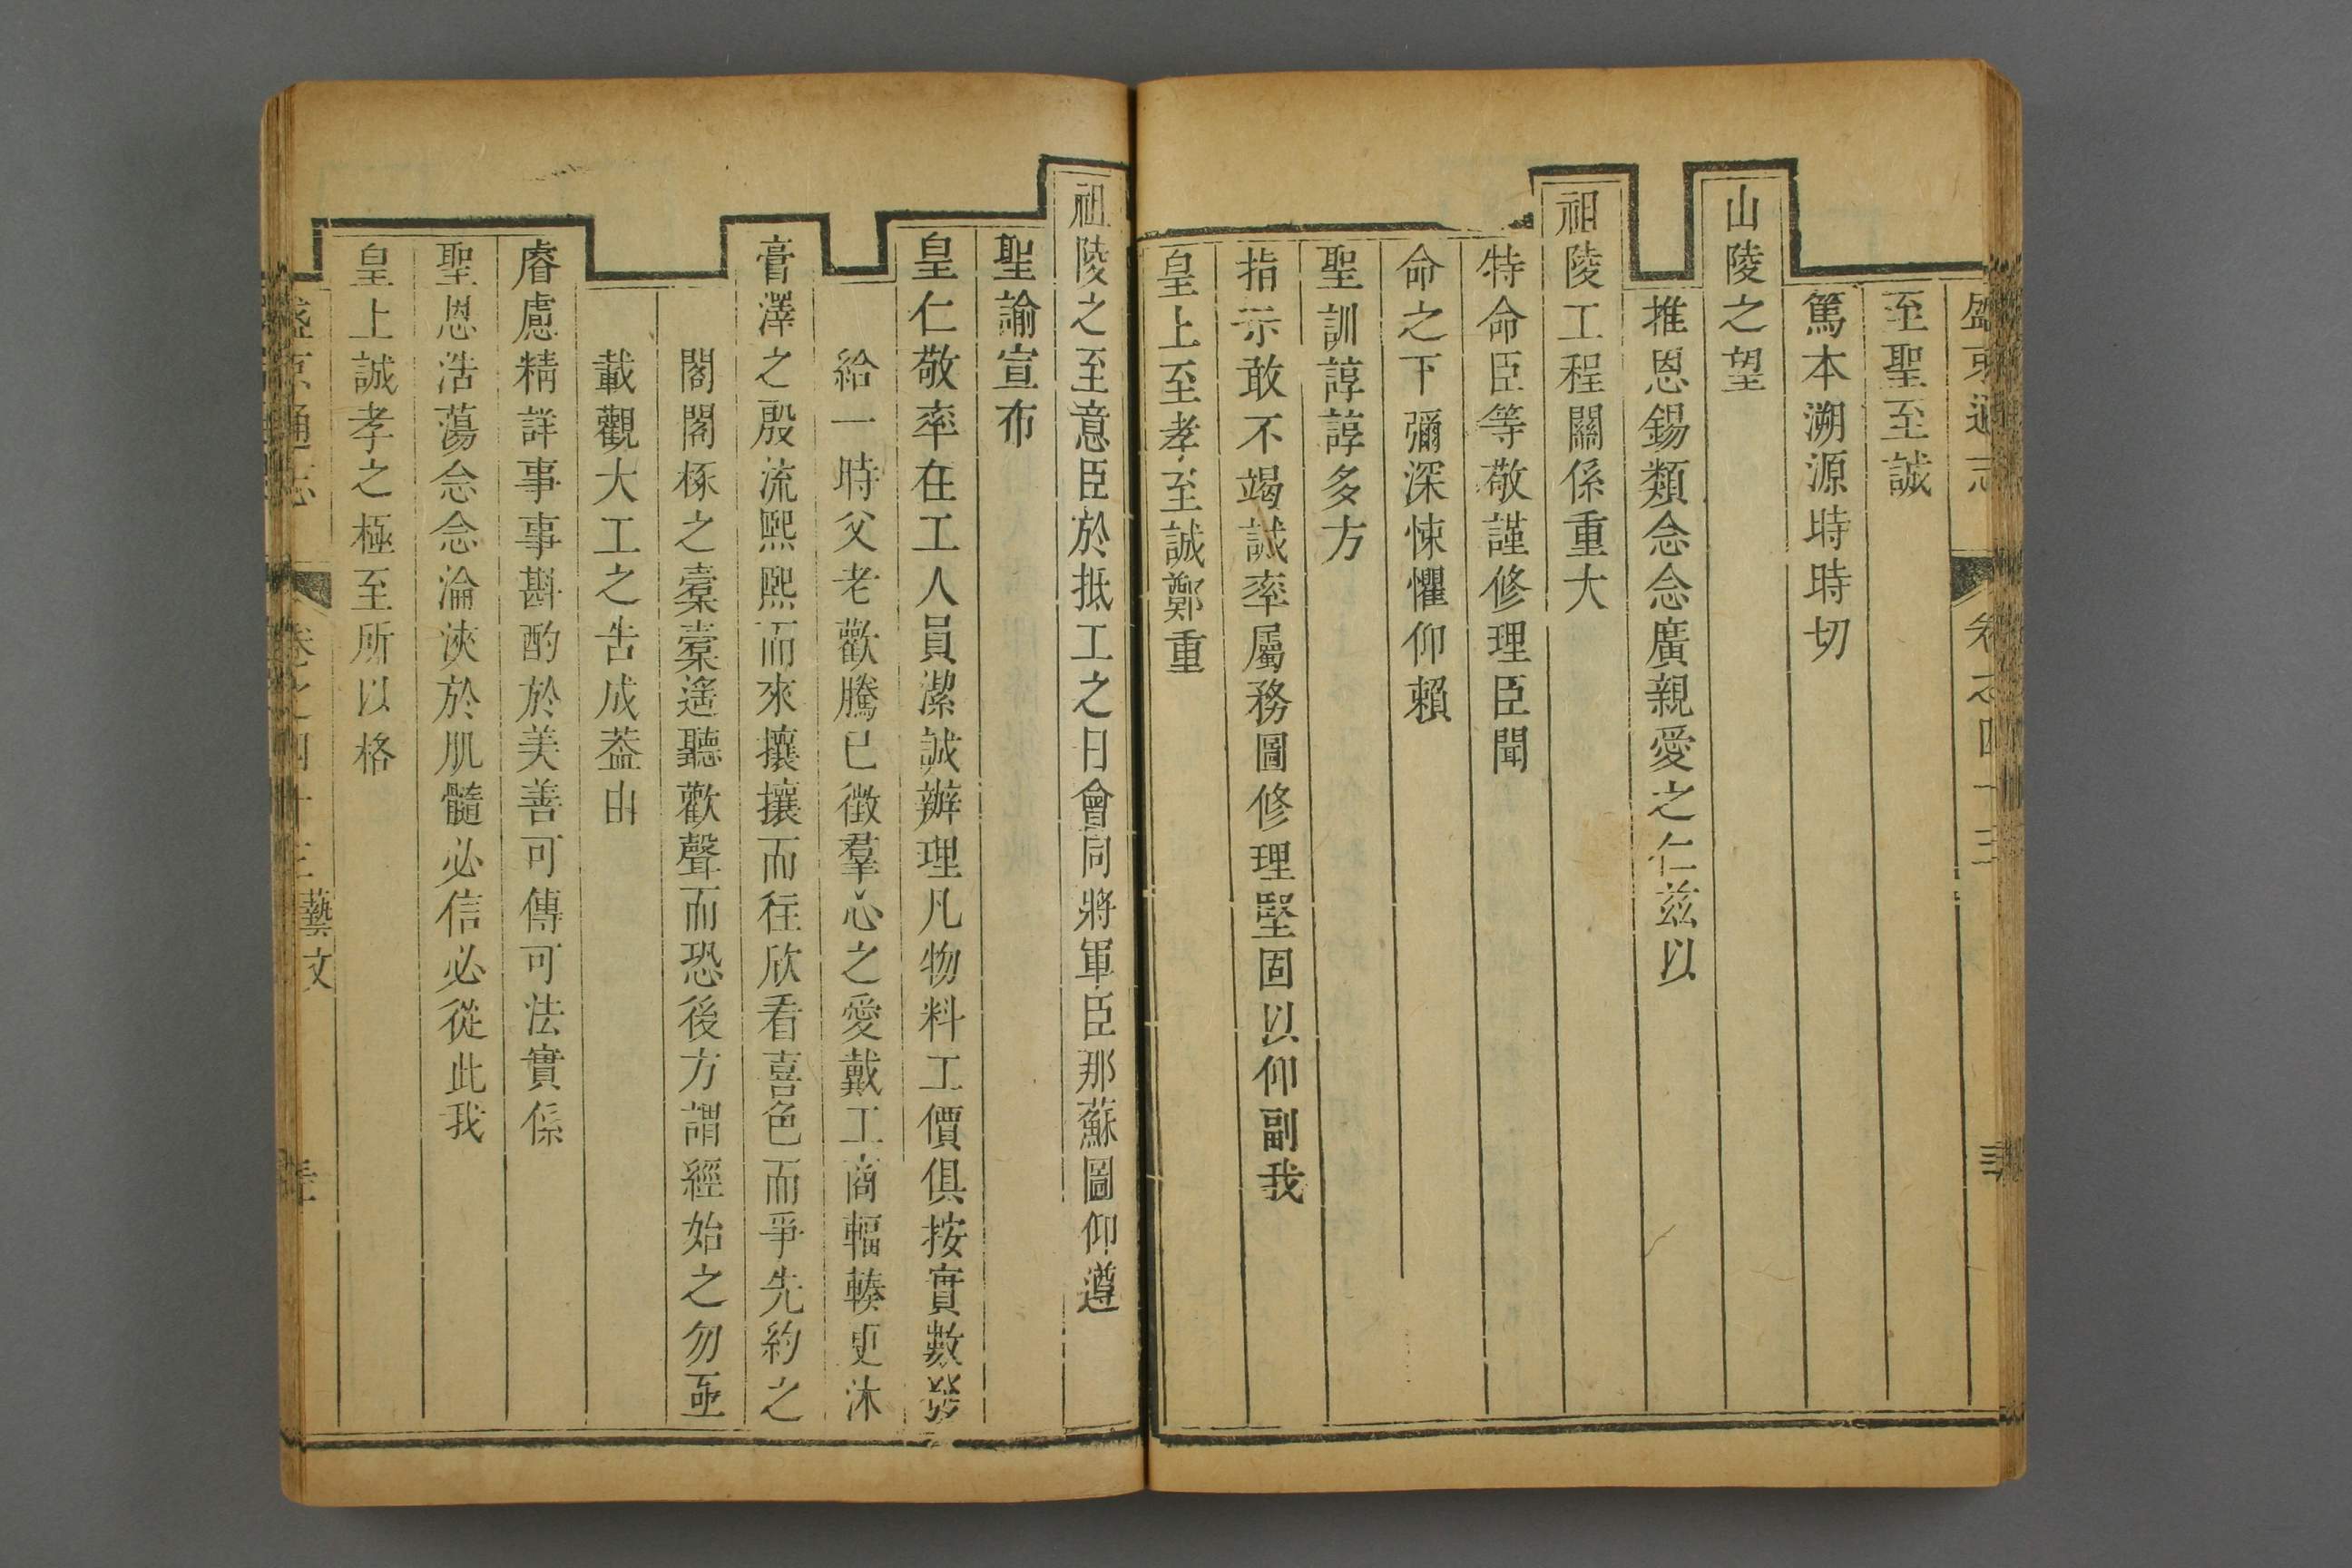 盛京通志 卷之四十三
至聖至誠
篤本溯源時時切
山陵之望
推恩錫類念念廣親愛之仁茲以
祖陵工程關係重大
特命臣等敬謹修理臣聞
命之下彌深悚懼仰賴
聖訓諄諄多方
指示敢不竭誠率屬務圖修理堅固以仰副我
皇上至孝至誠鄭重
祖陵之至意臣於抵工之日會同將軍臣那蘇圖仰遵
聖諭宣布
皇仁敬率在工人員潔誠辦理凡物料工價俱按實數發
給一時父老歡騰已徵羣心之愛戴工商輻輳更沐
膏澤之殷流熙熙而來攘攘而往欣看喜色而爭先約之
閣閣椓之橐橐遙聽歡聲而恐後方謂經始之勿亟
載觀大工之告成葢由
睿慮精詳事事斟酌於美善可傳可法實係
聖恩浩蕩念念淪浹於肌髓必信必從此我
皇上誠孝之極至所以格
盛京通志 卷之四十三 藝文